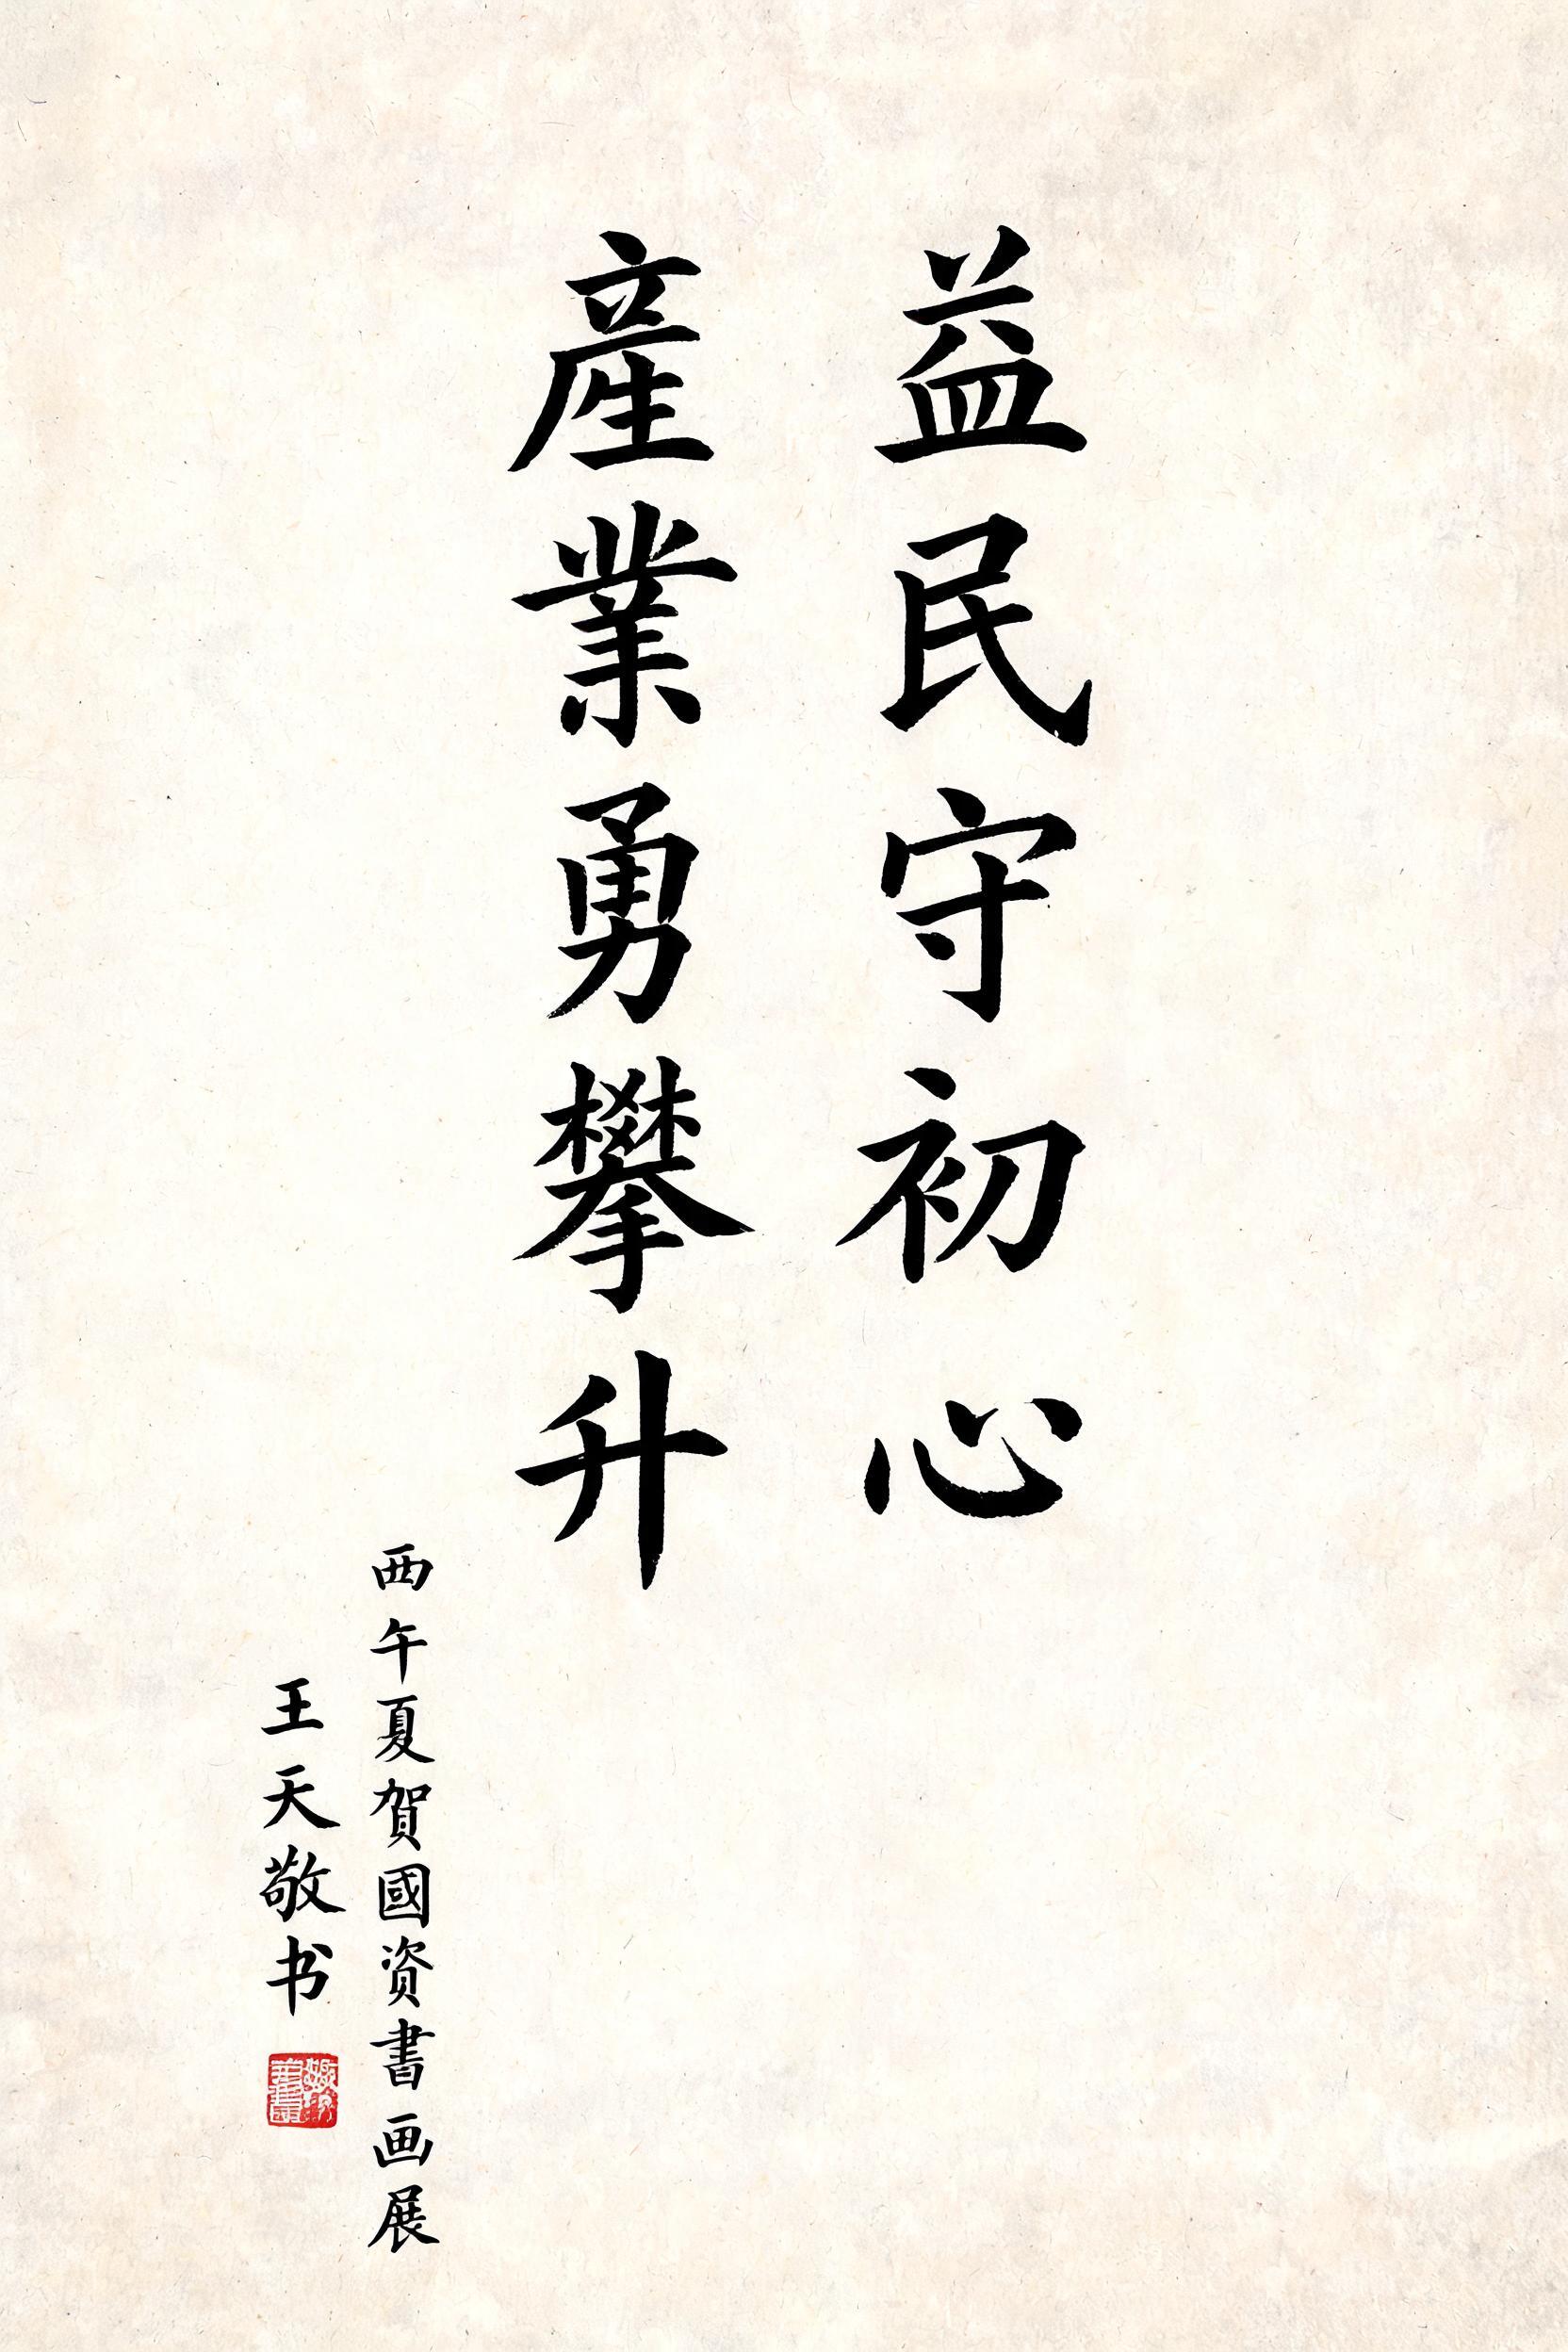 益民守初心
產業勇攀升
西午夏賀國资書画展
王天敬书